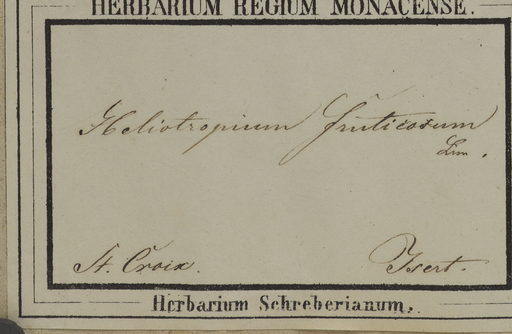 HERBARIUM REGIUM MONACENSE.
Heliotropium fruticosum
Linn.
St. Croix. Isert.
Herbarium Schreberianum.